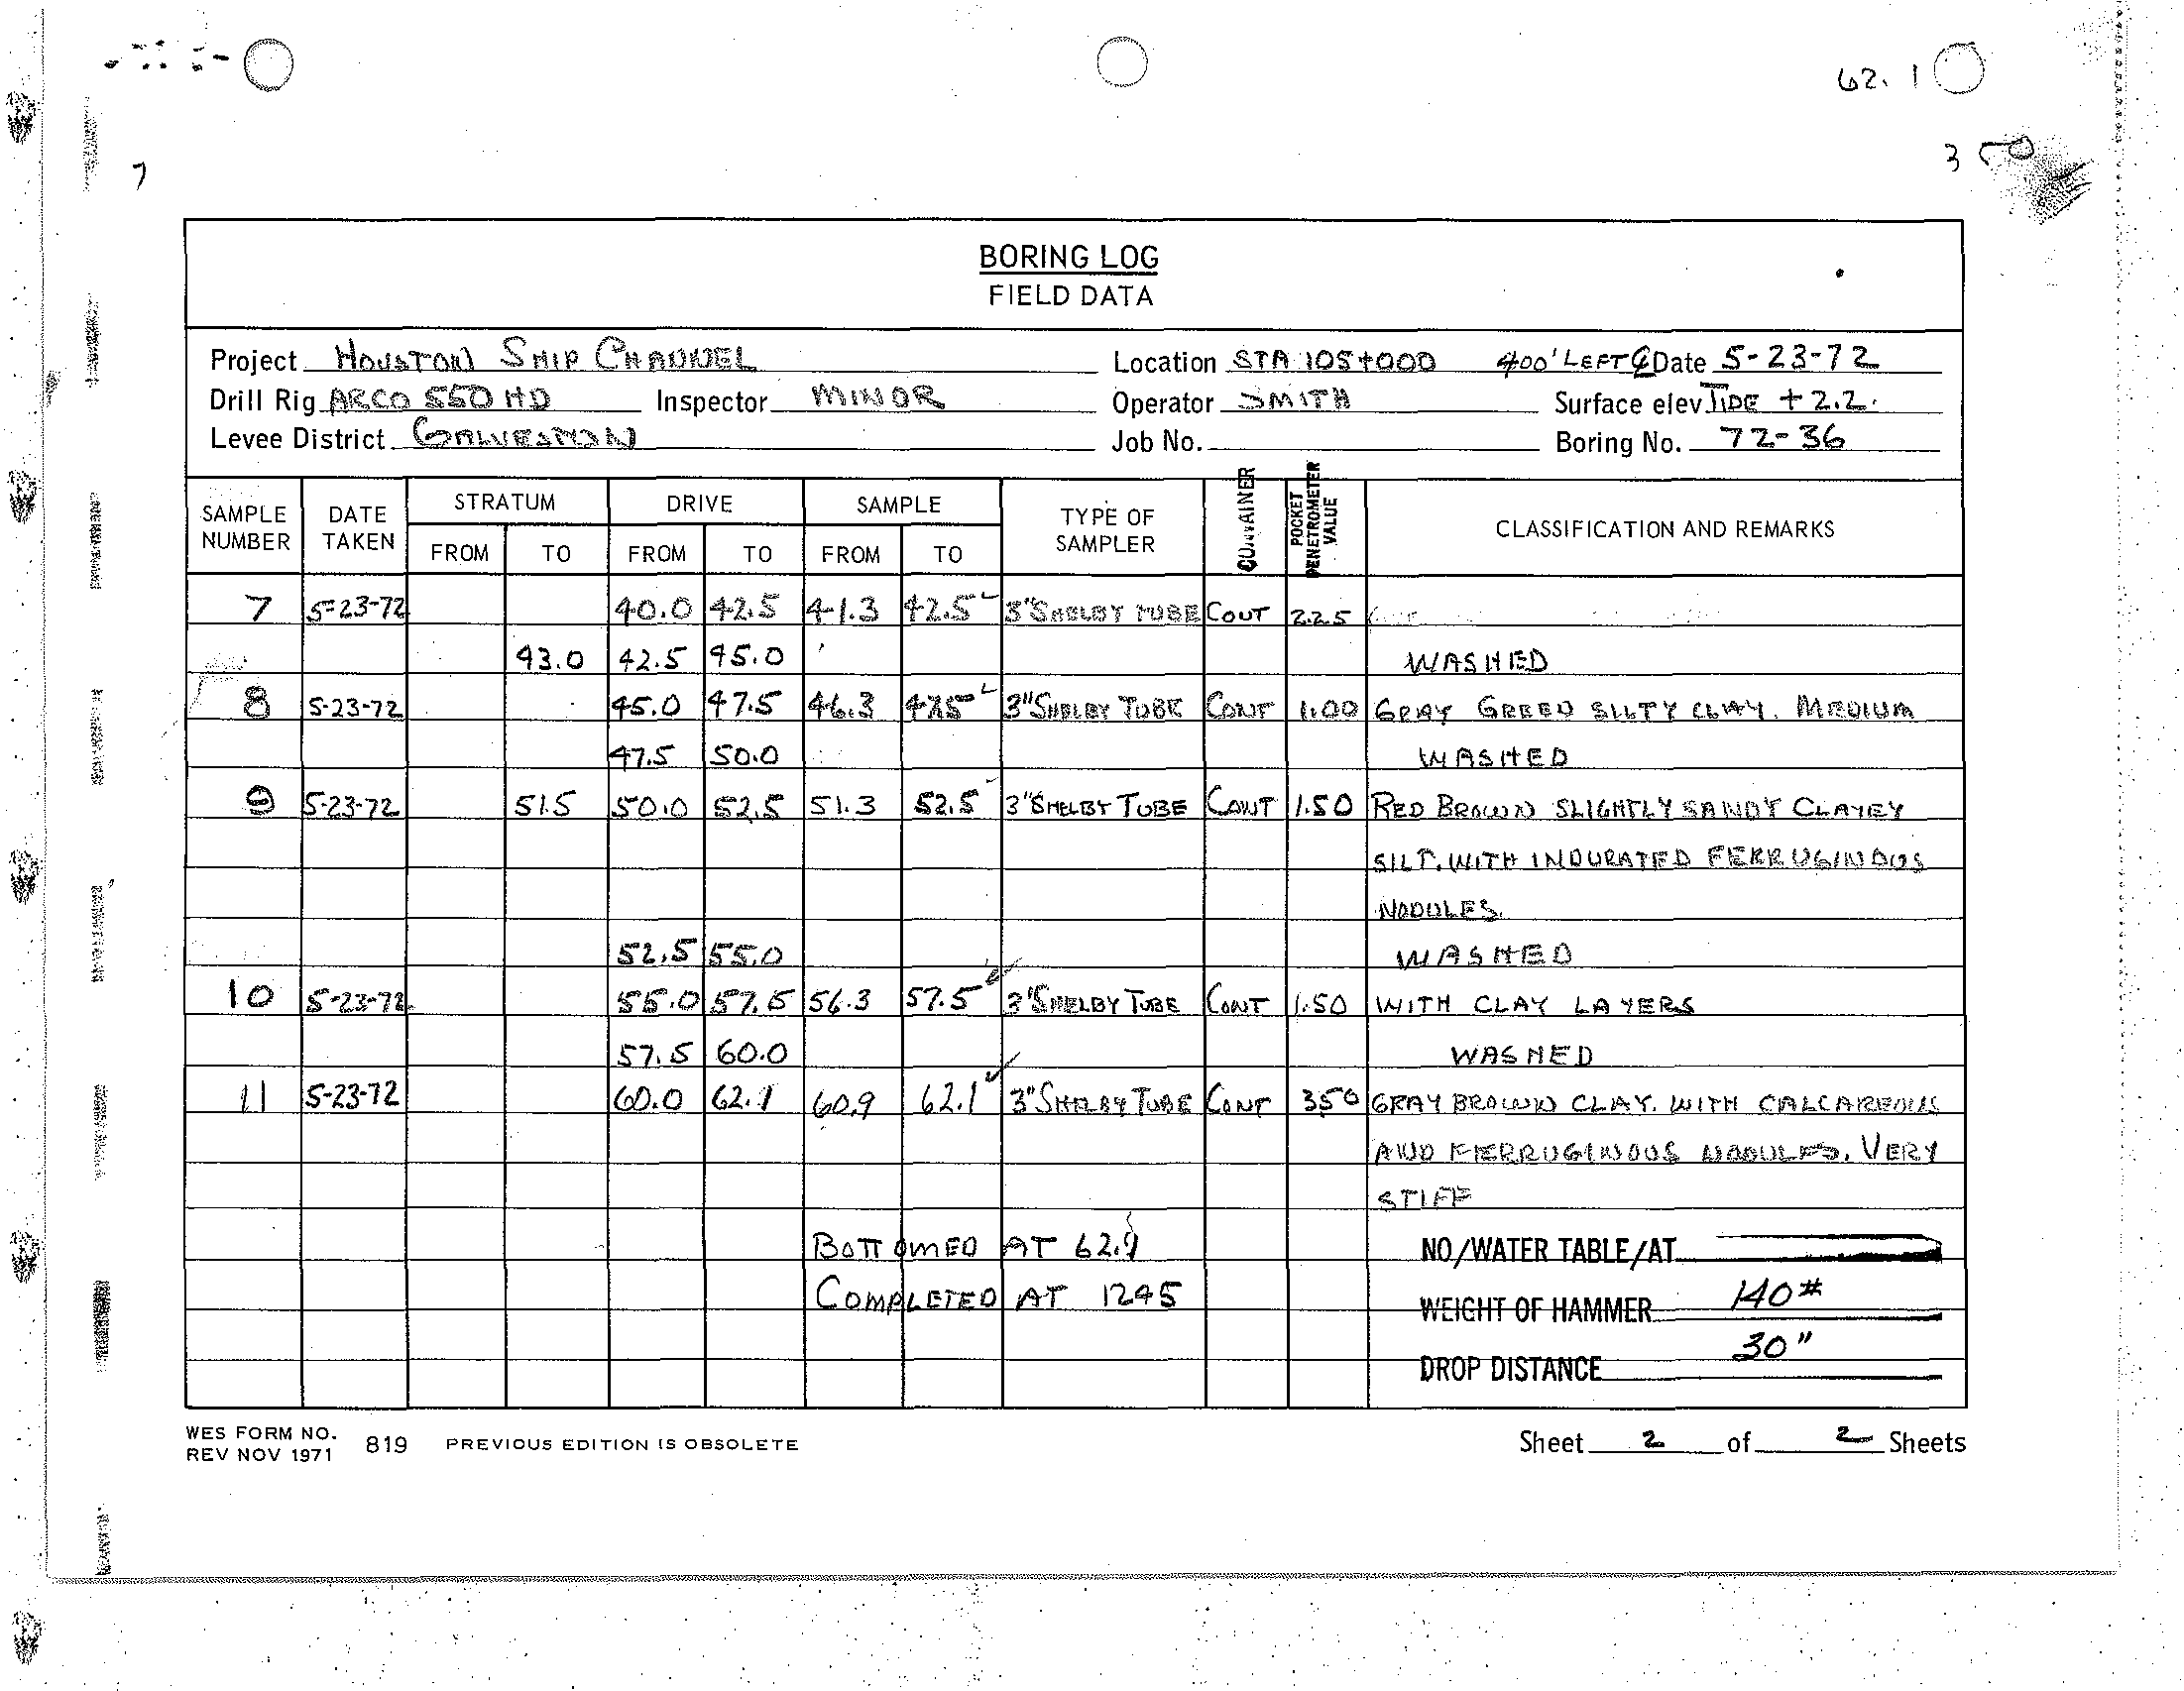 62. 1
7
3 50
BORING LOG
FIELD DATA
Project HOUSTON SHIP CHANNEL Location STA 105+000 400' LEFT ℄ Date 5-23-72
Drill Rig ARCO 550 HD Inspector MINOR Operator SMITH Surface elev TIDE +2.2.
Levee District GALVESTON Job No. Boring No. 72-36
SAMPLE NUMBER DATE TAKEN STRATUM FROM TO DRIVE FROM TO SAMPLE FROM TO TYPE OF SAMPLER CONTAINER POCKET PENETROMETER VALUE CLASSIFICATION AND REMARKS
7 5-23-72 40.0 42.5 41.3 42.5 3" SHELBY TUBE CONT 2.25
43.0 42.5 45.0 WASHED
8 5-23-72 45.0 47.5 46.3 47.5 3" SHELBY TUBE CONT 1.00 GRAY GREEN SILTY CLAY. MEDIUM
47.5 50.0 WASHED
9 5-23-72 51.5 50.0 52.5 51.3 52.5 3" SHELBY TUBE CONT 1.50 RED BROWN SLIGHTLY SANDY CLAYEY
SILT. WITH INDURATED FERRUGINOUS
NODULES.
52.5 55.0 WASHED
10 5-23-72 55.0 57.5 56.3 57.5 3" SHELBY TUBE CONT 1.50 WITH CLAY LAYERS
57.5 60.0 WASHED
11 5-23-72 60.0 62.1 60.9 62.1 3" SHELBY TUBE CONT 3.50 GRAY BROWN CLAY. WITH CALCAREOUS
AND FERRUGINOUS NODULES. VERY
STIFF
BOTTOMED AT 62.1 NO/WATER TABLE/AT
COMPLETED AT 1245 WEIGHT OF HAMMER 140#
DROP DISTANCE 30"
WES FORM NO. 819 PREVIOUS EDITION IS OBSOLETE
REV NOV 1971
Sheet 2 of 2 Sheets